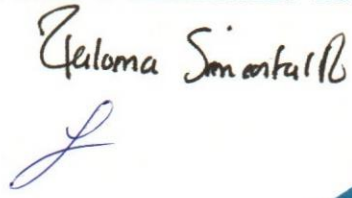 Paloma Simental R